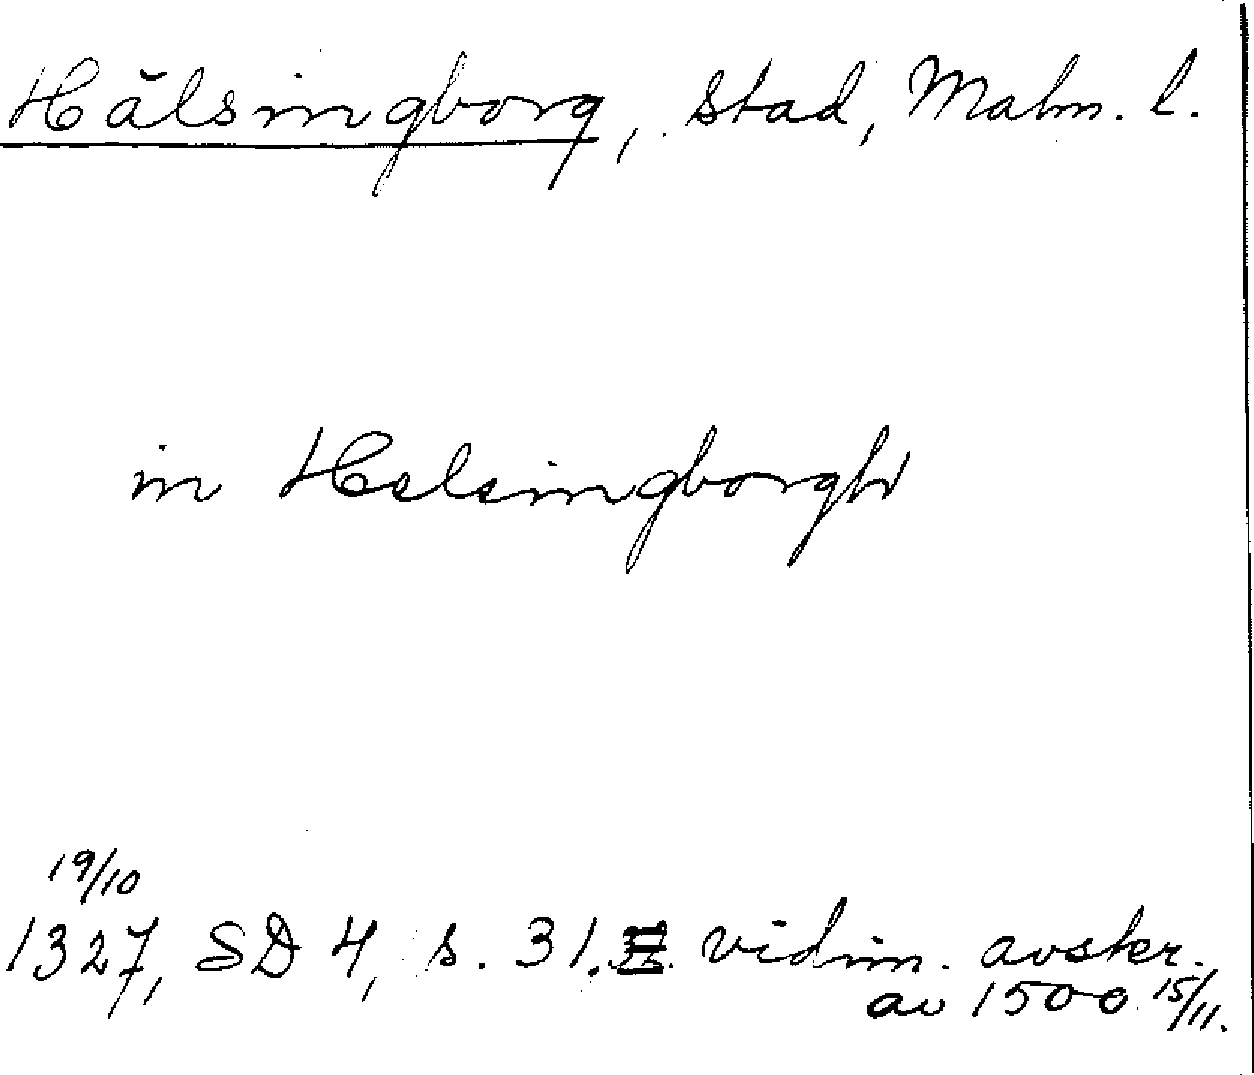 Hälsingborg, stad, Malm. l.
in Helsingborgh
19/10
1327, SD 4, s. 31. vidim. avskr.
av 1500 15/11.